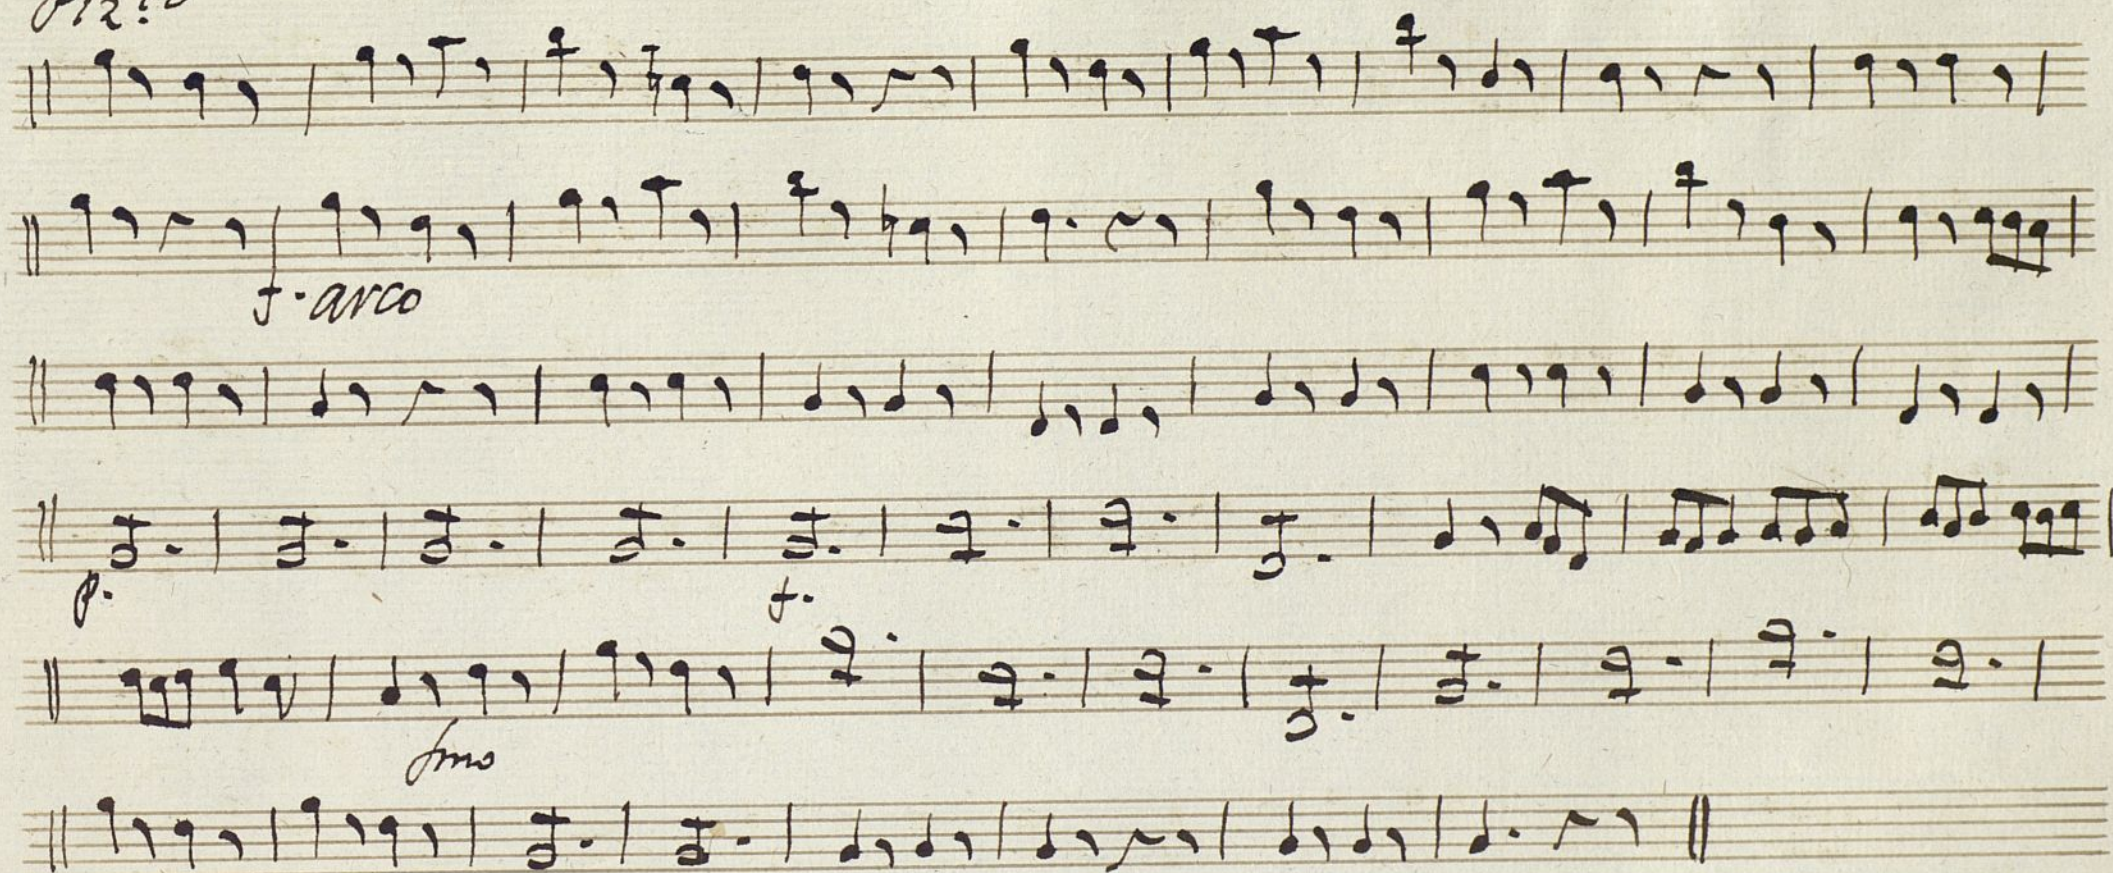 Pizz:to
f. arco
p. f.
fmo